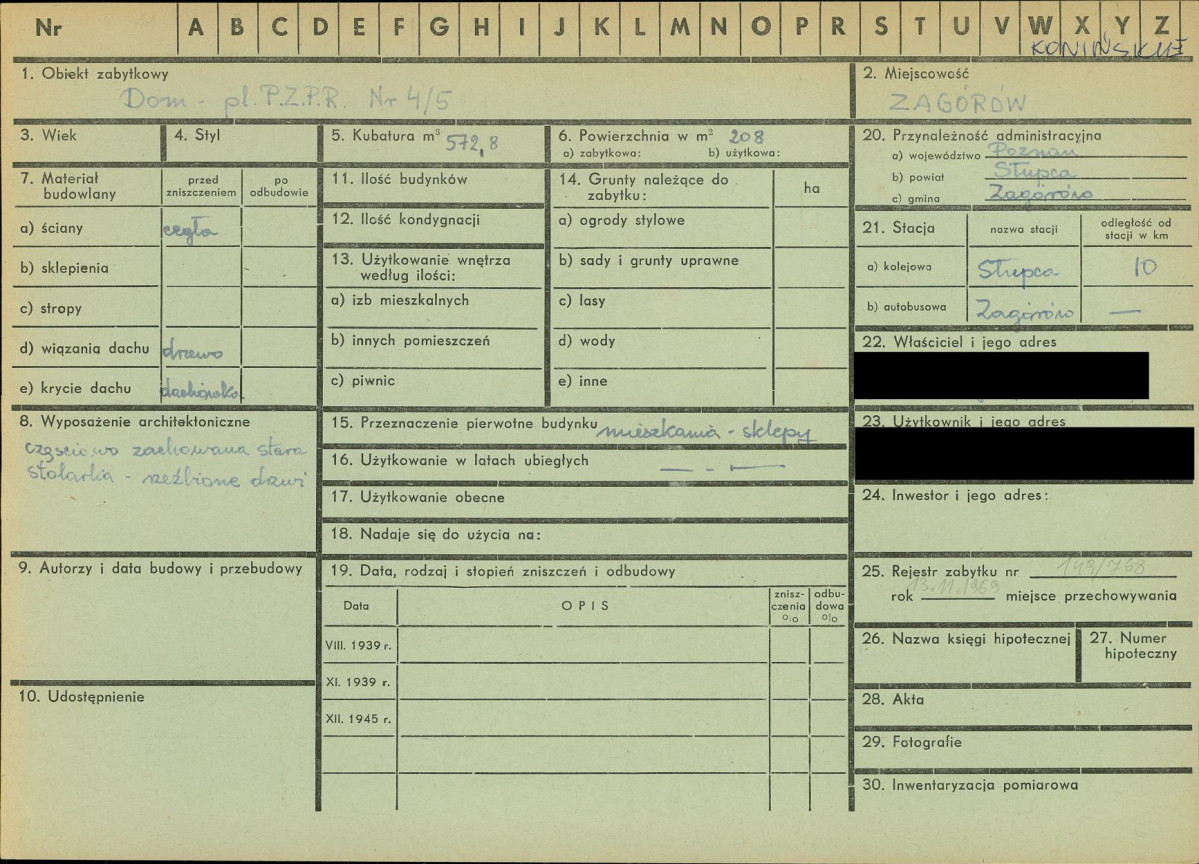 Nr A B C D E F G H I J K L M N O P R S T U V W X Y Z
KONIŃSKIE
1. Obiekt zabytkowy
Dom - pl. P.Z.P.R. Nr 4/5
2. Miejscowość
ZAGÓRÓW
3. Wiek
4. Styl
5. Kubatura m³ 572,8
6. Powierzchnia w m² 208
a) zabytkowa: b) użytkowa:
20. Przynależność administracyjna
a) województwo Poznań
b) powiat Słupca
c) gmina Zagórów
7. Materiał budowlany
przed zniszczeniem
po odbudowie
a) ściany cegła
b) sklepienia
c) stropy
d) wiązania dachu drzewo
e) krycie dachu dachówka
11. Ilość budynków
12. Ilość kondygnacji
13. Użytkowanie wnętrza
według ilości:
a) izb mieszkalnych
b) innych pomieszczeń
c) piwnic
14. Grunty należące do
zabytku:
ha
a) ogrody stylowe
b) sady i grunty uprawne
c) lasy
d) wody
e) inne
21. Stacja
nazwa stacji
odległość od
stacji w km
a) kolejowa Słupca 10
b) autobusowa Zagórów —
22. Właściciel i jego adres
23. Użytkownik i jego adres
24. Inwestor i jego adres:
8. Wyposażenie architektoniczne
częściowo zachowana stara
stolarka - rzeźbione drzwi
15. Przeznaczenie pierwotne budynku mieszkania - sklepy
16. Użytkowanie w latach ubiegłych — . —
17. Użytkowanie obecne
18. Nadaje się do użycia na:
9. Autorzy i data budowy i przebudowy
10. Udostępnienie
19. Data, rodzaj i stopień zniszczeń i odbudowy
Data
OPIS
znisz-
czenia
o|o
odbu-
dowa
o|o
VIII. 1939 r.
XI. 1939 r.
XII. 1945 r.
25. Rejestr zabytku nr 149/768
rok 13.11.1969 miejsce przechowywania
26. Nazwa księgi hipotecznej
27. Numer
hipoteczny
28. Akta
29. Fotografie
30. Inwentaryzacja pomiarowa